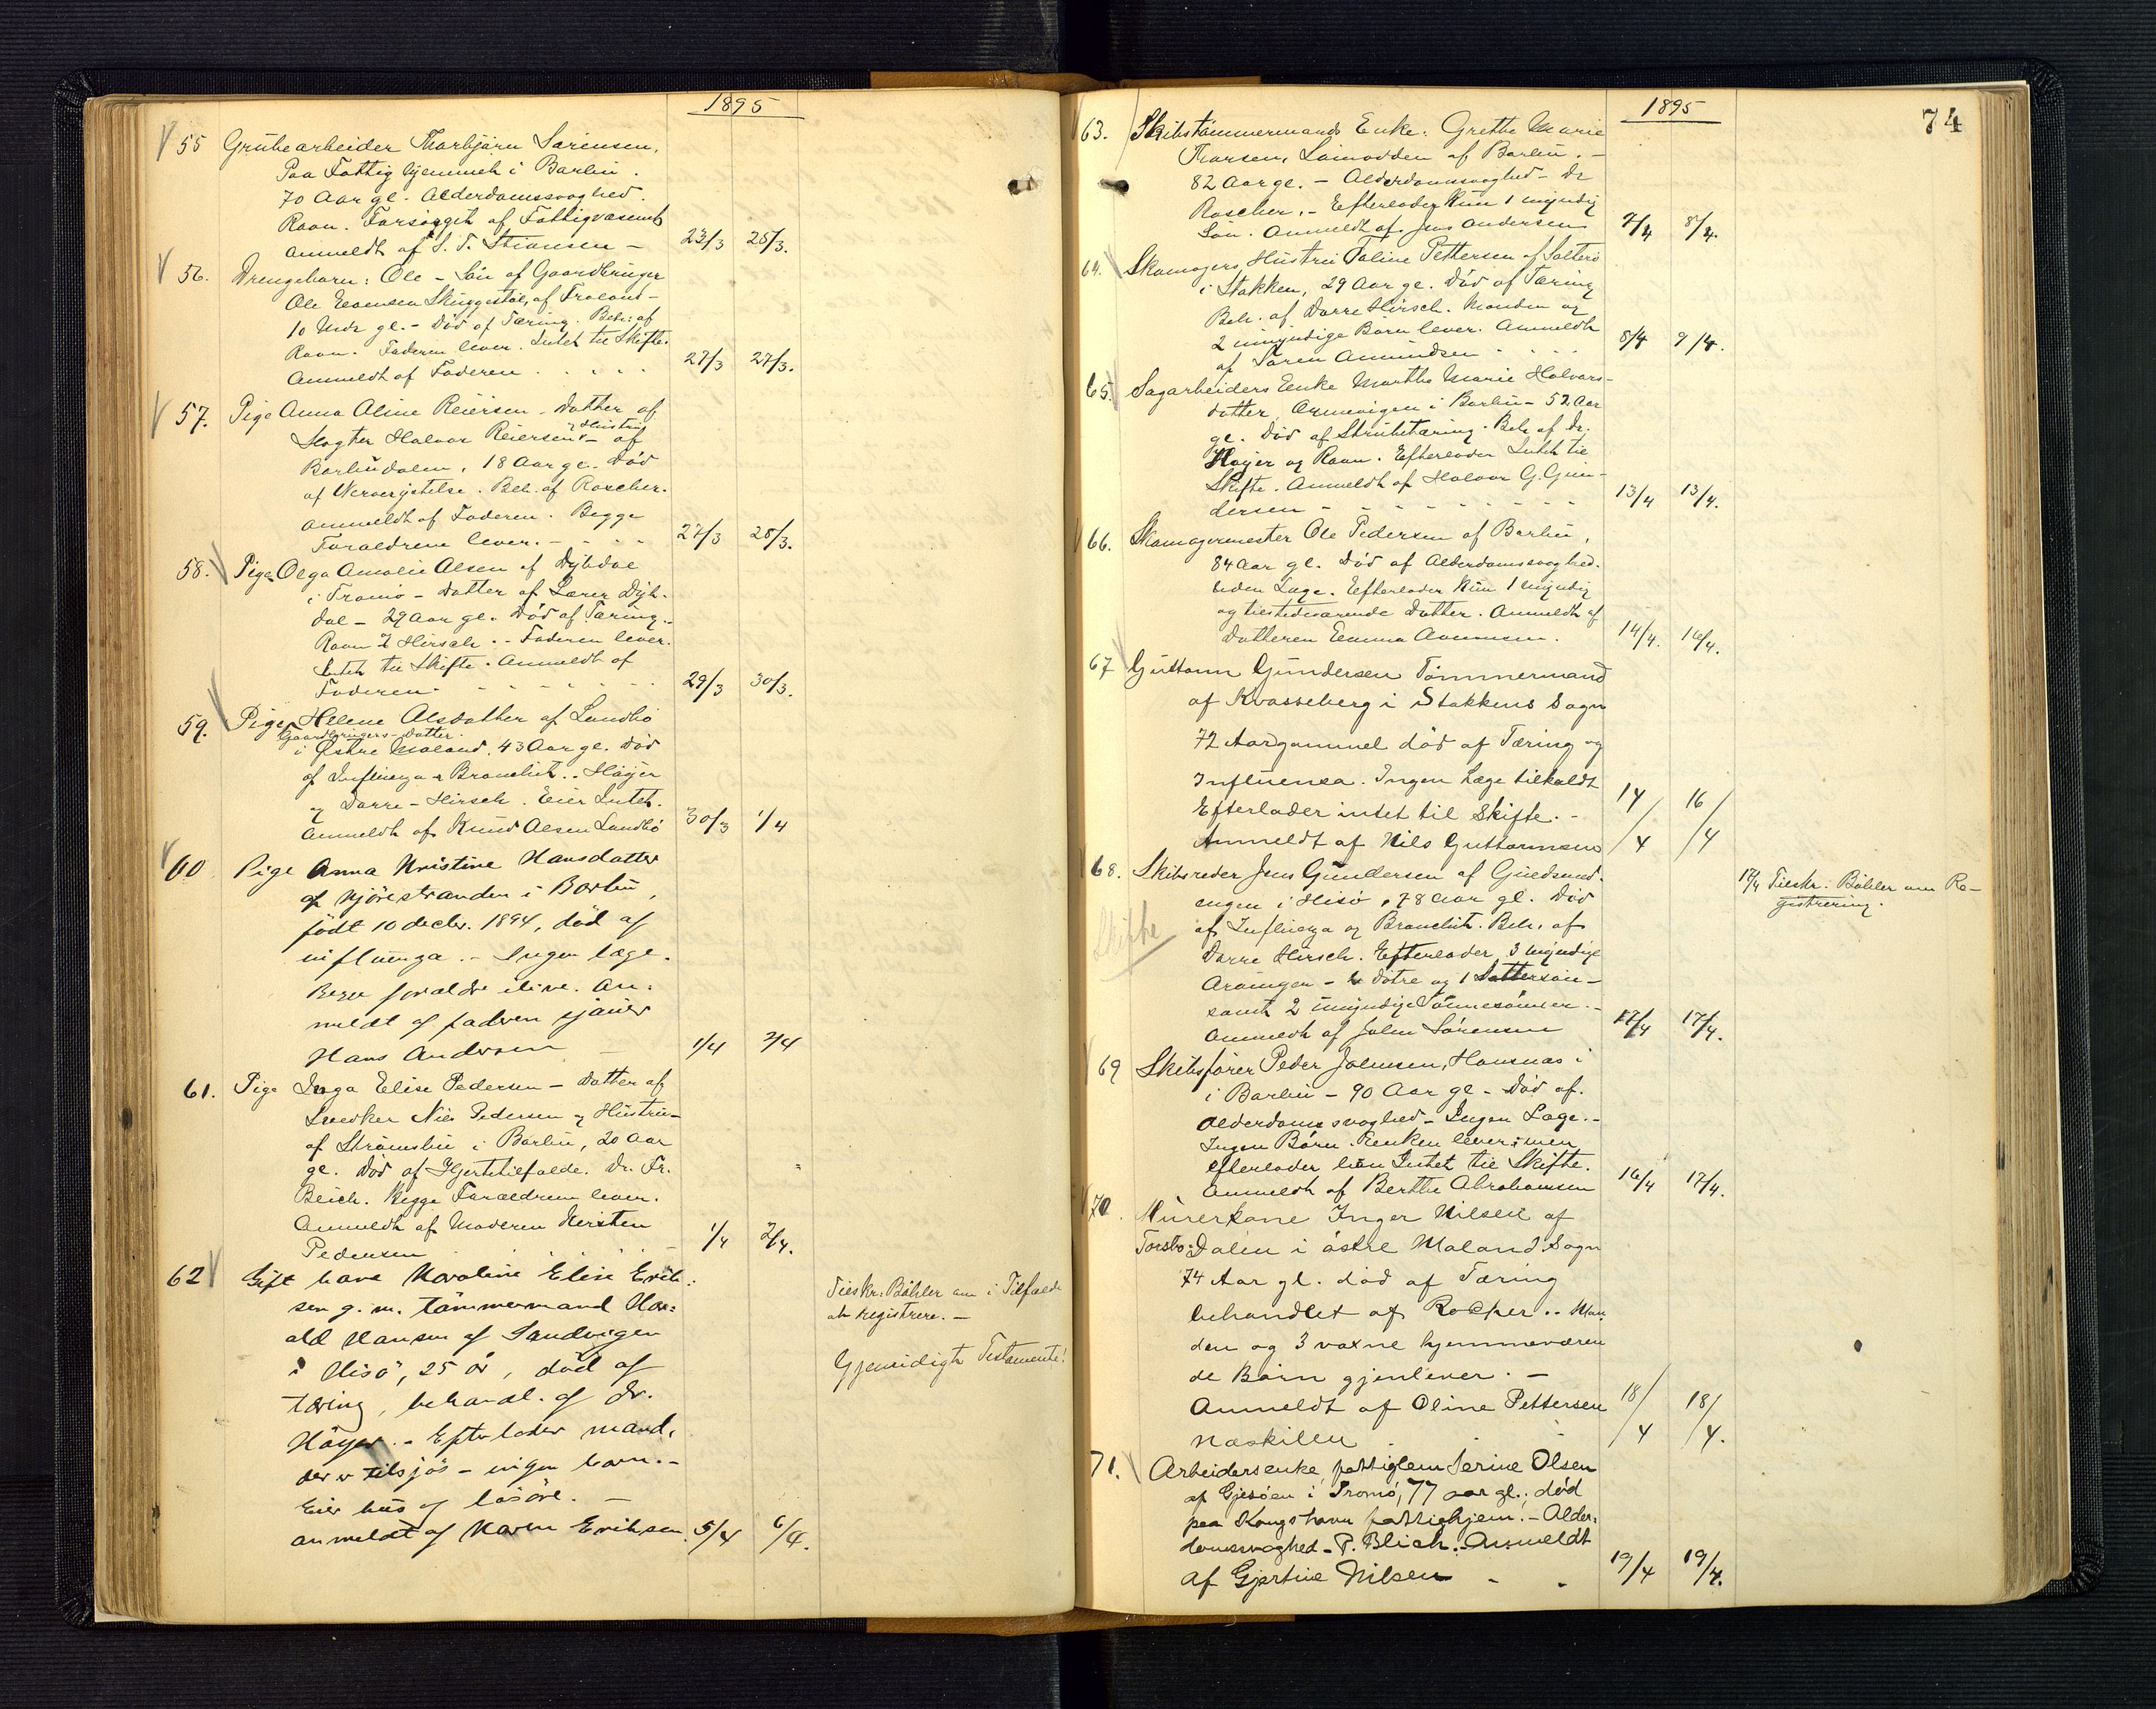 1895
55 Grubearbeider Thorbjørn Sørensen,
Paa Fattighjemmet i Barbu.
70 Aar gl. Alderdomssvaghed.
Ravn. Forsørget af Fattigvæsenet
Anmeldt af S. T. Stiansen – 23/3 25/3.
56. Drengebarn: Ole – Søn af Gaardbruger
Ole Evensen Skuggestøl, af Froland –
10 Mdr gl. – Død af Tæring. Beh: af
Ravn. Faderen lever. Intet til Skifte.
Anmeldt af Faderen . . . . 27/3 27/3.
57. Pige Anna Aline Reiersen – Datter af
Slagter Halvor Reiersen & Hustru – af
Barbudalen, 18 Aar gl. Død
af Nerverystelse. Beh. af Roscher.
Anmeldt af Faderen. Begge
Forældrene lever. – – – 27/3 28/3.
58. Pige Olga Amalie Olsen af Dybdal
i Tromø – Datter af Lærer Dyb-
dal – 29 Aar gl. Død af Tæring. –
Ravn & Hirsch. – Faderen lever.
Intet til Skifte. Anmeldt af
Faderen. – – – – – 29/3 30/3.
59. Pige Helene Olsdatter af Lundbø
Gaardbrugers-Datter.
i Østre Moland. 43 Aar gl. Død
af Influenza & Bronchit. . Høyer
og Dorre-Hirsch. Eier Intet.
Anmeldt af Knud Olsen Lundbø 30/3 1/4
60 Pige Anna Kristine Hansdatter
af Kjörestranden i Barbu,
født 10 decbr. 1894, död af
influenza. – Ingen læge.
Begge forældre ilive. An-
meldt af faderen sjauer
Hans Andersen – 1/4 2/4
61. Pige Inga Elise Pedersen – Datter af
Snedker Nils Pedersen og Hustru –
af Strømsbu i Barbu, 20 Aar
gl. Død af Hjertetilfælde. Dr. Fr.
Blich. Begge Forældrene lever.
Anmeldt af Moderen Kirsten
Pedersen 1/4 2/4.
62 Gift kone Karoline Elise Erik-
sen g. m. tömmermand Har-
ald Hansen af Sandvigen
i Hisö, 25 år, död af
tæring, behandl. af dr.
Höyer. – Efterlader mand,
der er tilsjös – ingen barn. –
Eier hus og lösöre. –
anmeldt af Karen Eriksen 5/4 6/4.
Tilskr. Bøhler om i Tilfælde
at registrere. –
Gjensidigt Testamente!
74
1895
63. Skibstømmermands Enke: Grethe Marie
Thorsen, Loimodden af Barbu. –
82 Aar gl. – Alderdomssvaghed – Dr
Roscher. – Efterlader kun 1 myndig
Søn. Anmeldt af Jens Andersen 7/4 8/4.
64. Skomagers Hustru Taline Pettersen af Salterø
i Stokken, 29 Aar gl. Død af Tæring
Beh. af Dorre Hirsch. Manden og
2 umyndige Børn lever. Anmeldt
af Søren Amundsen . . . . 8/4 9/4.
65. Sagarbeiders Enke Marthe Marie Halvors-
datter, Ormevigen i Barbu – 52 Aar
gl. Død af Strubetæring. Beh. af Dr.
Høyer og Ravn. Efterlader Intet til
Skifte. Anmeldt af Halvor G. Gun-
dersen – – – – – – – 13/4 13/4.
66. Skomagermester Ole Pedersen af Barbu,
84 Aar gl. Død af Alderdomssvaghed.
Uden Læge. Efterlader kun 1 myndig
og tilstedeværende Datter. Anmeldt af
Datteren Emma 14/4. 16/4.
67 Guttorm Gundersen Tömmermand
af Kvasseberg i Stokkens Sogn
72 Aar gammel död af Tæring og
Influensa. Ingen Læge tilkaldt
Efterlader intet til Skifte. –
Anmeldt af Nils Guttormsen 14/4 16/4
68. Skibsreder Jens Gundersen af Guldsmed-
engen i Hisø, 78 Aar gl. Død
af Influenza og Bronchit. Beh. af
Dorre Hirsch. Efterlader 3 myndige
Arvinger – 2 Døtre og 1 Dattersøn –
samt 2 umyndige Sønnesønner. –
Anmeldt af John Sørensen 17/4 17/4.
Skifte
17/4 Tilskr. Bøhler om Re-
gistrering.
69 Skibsfører Peder Johnsen, Hansnæs i
i Barbu – 90 Aar gl – Død af
Alderdomssvaghed – Ingen Læge. –
Ingen Børn. Enken lever, men
efterlader han Intet til Skifte.
Anmeldt af Berthe Abrahamsen 16/4 17/4.
70. Murerkone Inger Nilsen af
Torsbo-Dalen i østre Moland Sogn
74 Aar gl. død af Tæring
behandlet af Rocher. . Man-
den og 3 voxne hjemmeværen
de Börn gjenlever. –
Anmeldt af Oline Pettersen
Næskilen 18/4 18/4.
71. Arbeidersenke, fattiglem Serine Olsen
af Gjesöen i Tromö, 77 aar gl.; död
paa Kongshavn fattighjem. – Alder-
domssvaghed – P. Blich. Anmeldt
af Gjertine Nilsen – – 19/4 19/4.